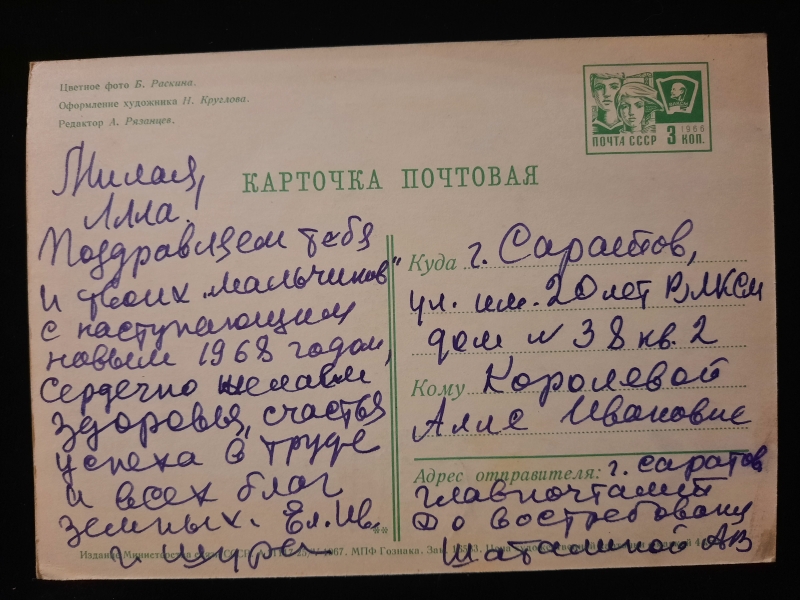 Цветное фото Б. Раскина.
Оформление художника Н. Круглова.
Редактор А. Рязанцев.
1966
ПОЧТА СССР 3 КОП.
КАРТОЧКА ПОЧТОВАЯ
Милая,
Алла.
Поздравляем тебя
и твоих „мальчиков"
с наступающим
новым 1968 годом,
Сердечно желаем
здоровья, счастья
успеха в труде
и всех благ
земных. Ел. Ив.
и Шура
Куда г. Саратов,
ул. им. 20 лет ВЛКСМ
дом № 38 кв. 2
Кому Королевой
Алле Ивановне
Адрес отправителя: г. Саратов
главпочтамт
До востребования
АВ
Издание Министерства связи СССР. 1967. МПФ Гознака. Зак.